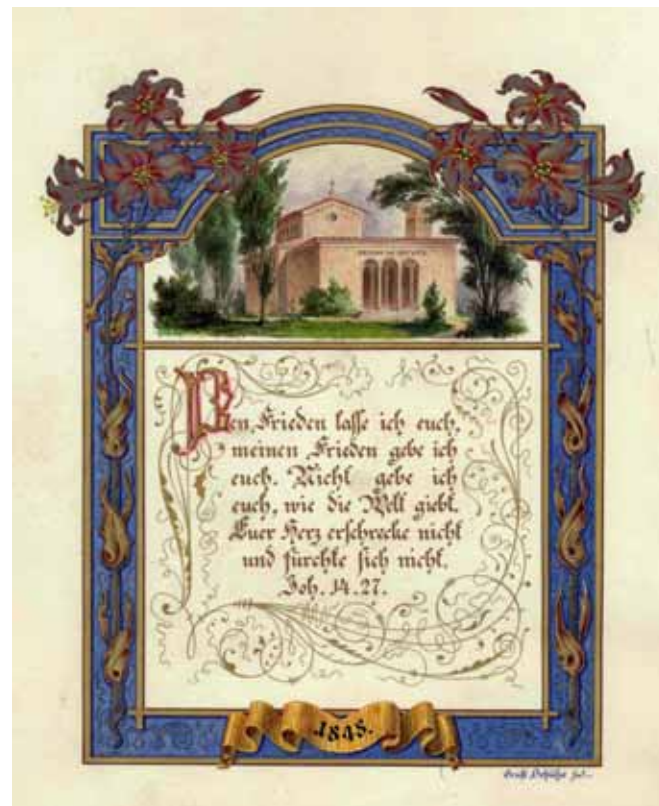 Den Frieden lasse ich euch,
meinen Frieden gebe ich
euch. Nicht gebe ich
euch, wie die Welt giebt.
Euer Herz erschrecke nicht
und fürchte sich nicht.
Joh. 14.27.
1848.